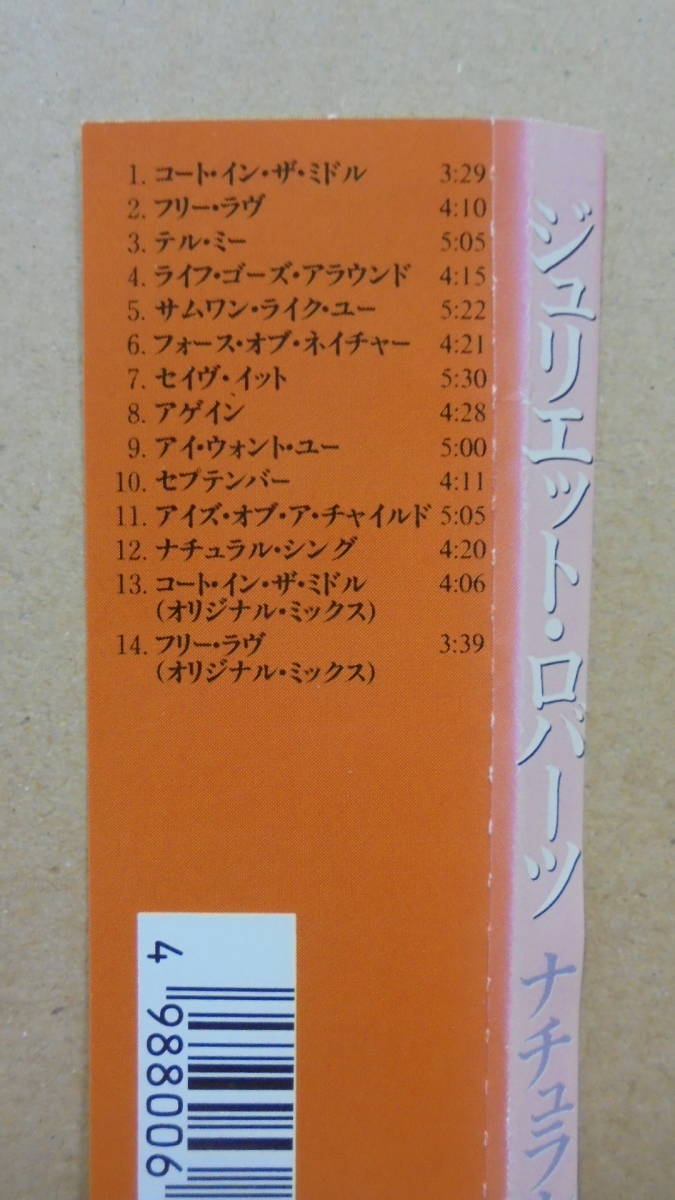 1. コート・イン・ザ・ミドル 3:29
2. フリー・ラヴ 4:10
3. テル・ミー 5:05
4. ライフ・ゴーズ・アラウンド 4:15
5. サムワン・ライク・ユー 5:22
6. フォース・オブ・ネイチャー 4:21
7. セイヴ・イット 5:30
8. アゲイン 4:28
9. アイ・ウォント・ユー 5:00
10. セプテンバー 4:11
11. アイズ・オブ・ア・チャイルド 5:05
12. ナチュラル・シング 4:20
13. コート・イン・ザ・ミドル 4:06
(オリジナル・ミックス)
14. フリー・ラヴ 3:39
(オリジナル・ミックス)
4 988006
ジュリエット・ロバーツ ナチュラ